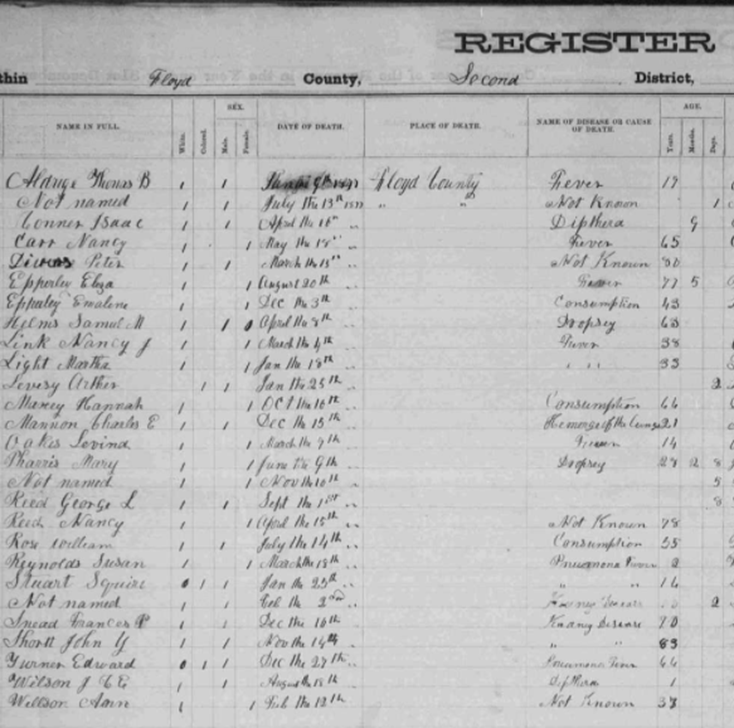 REGISTER
thin Floyd County, Second District,
NAME IN FULL. White. Colored. SEX. Male. Female. DATE OF DEATH. PLACE OF DEATH. NAME OF DISEASE OR CAUSE OF DEATH. AGE. Years. Months. Days.
Aldrige Thomas B 1 1 Floyd County Fever 19
Not named 1 1 July the 13th 1877 " " Not Known 1
Conner Isaac 1 1 April the 16th " Dipthera 9
Carr Nancy 1 1 May the 18th " Fever 65
Peter 1 1 March the 15th " Not Known 80
Epperley Eliza 1 1 August 20th 77 5
Epperley Emalene 1 1 Dec the 3th " Consumption 43
Helms Samul M 1 1 April the 8th " Dropsey 63
Link Nancy J 1 1 March the 4th " Fever 38
Light Martha 1 1 Jan the 18th " " " 33
Levesy Arther 1 1 Jan the 25th " 2
Marcy Hannah 1 1 Oct the 16th " Consumption 66
Mannon Charles E 1 1 Dec the 15th " Hemorge of the Lungs 21
Oakes Lovina 1 1 March the 9th " Fever 14
Pharris Mary 1 1 June the 9th " Dropsey 28 2 8
Not named 1 1 Nov the 10th " 5
Reed George L 1 1 Sept the 1st " 8
Reed Nancy 1 1 April the 15th " Not Known 78
Rose William 1 1 July the 14th " Consumption 55
Reynolds Susan 1 1 March the 18th " Pneumona Fever 2
Stuart Squire 1 1 Jan the 25th " " " 16
Not named 1 1 Feb the 2nd " 2
Snead Frances P 1 1 Dec the 16th " Kidney Disease 70
Shortt John Y 1 1 Nov the 14th " " 83
Turner Edward 1 1 Dec the 27th " Pneumona Fever 66
Wilson J C E 1 1 August the 18th " Dipthera 1
Willson Ann 1 1 Feb the 12th " Not Known 38